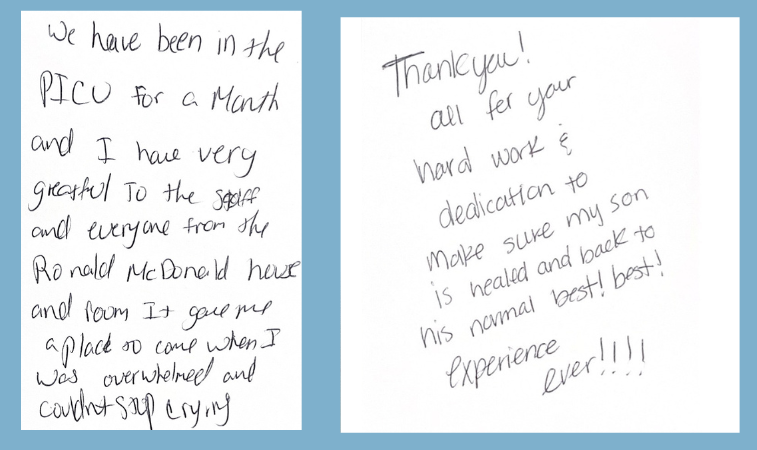 We have been in the
PICU for a Month
and I have very
greatful To the staff
and everyone from the
Ronald McDonald house
and room It gave me
a place to come when I
was overwhelmed and
couldnt stop crying
Thankyou!
all for your
hard work &
dedication to
make sure my son
is healed and back to
his normal best! best!
experience
ever!!!!